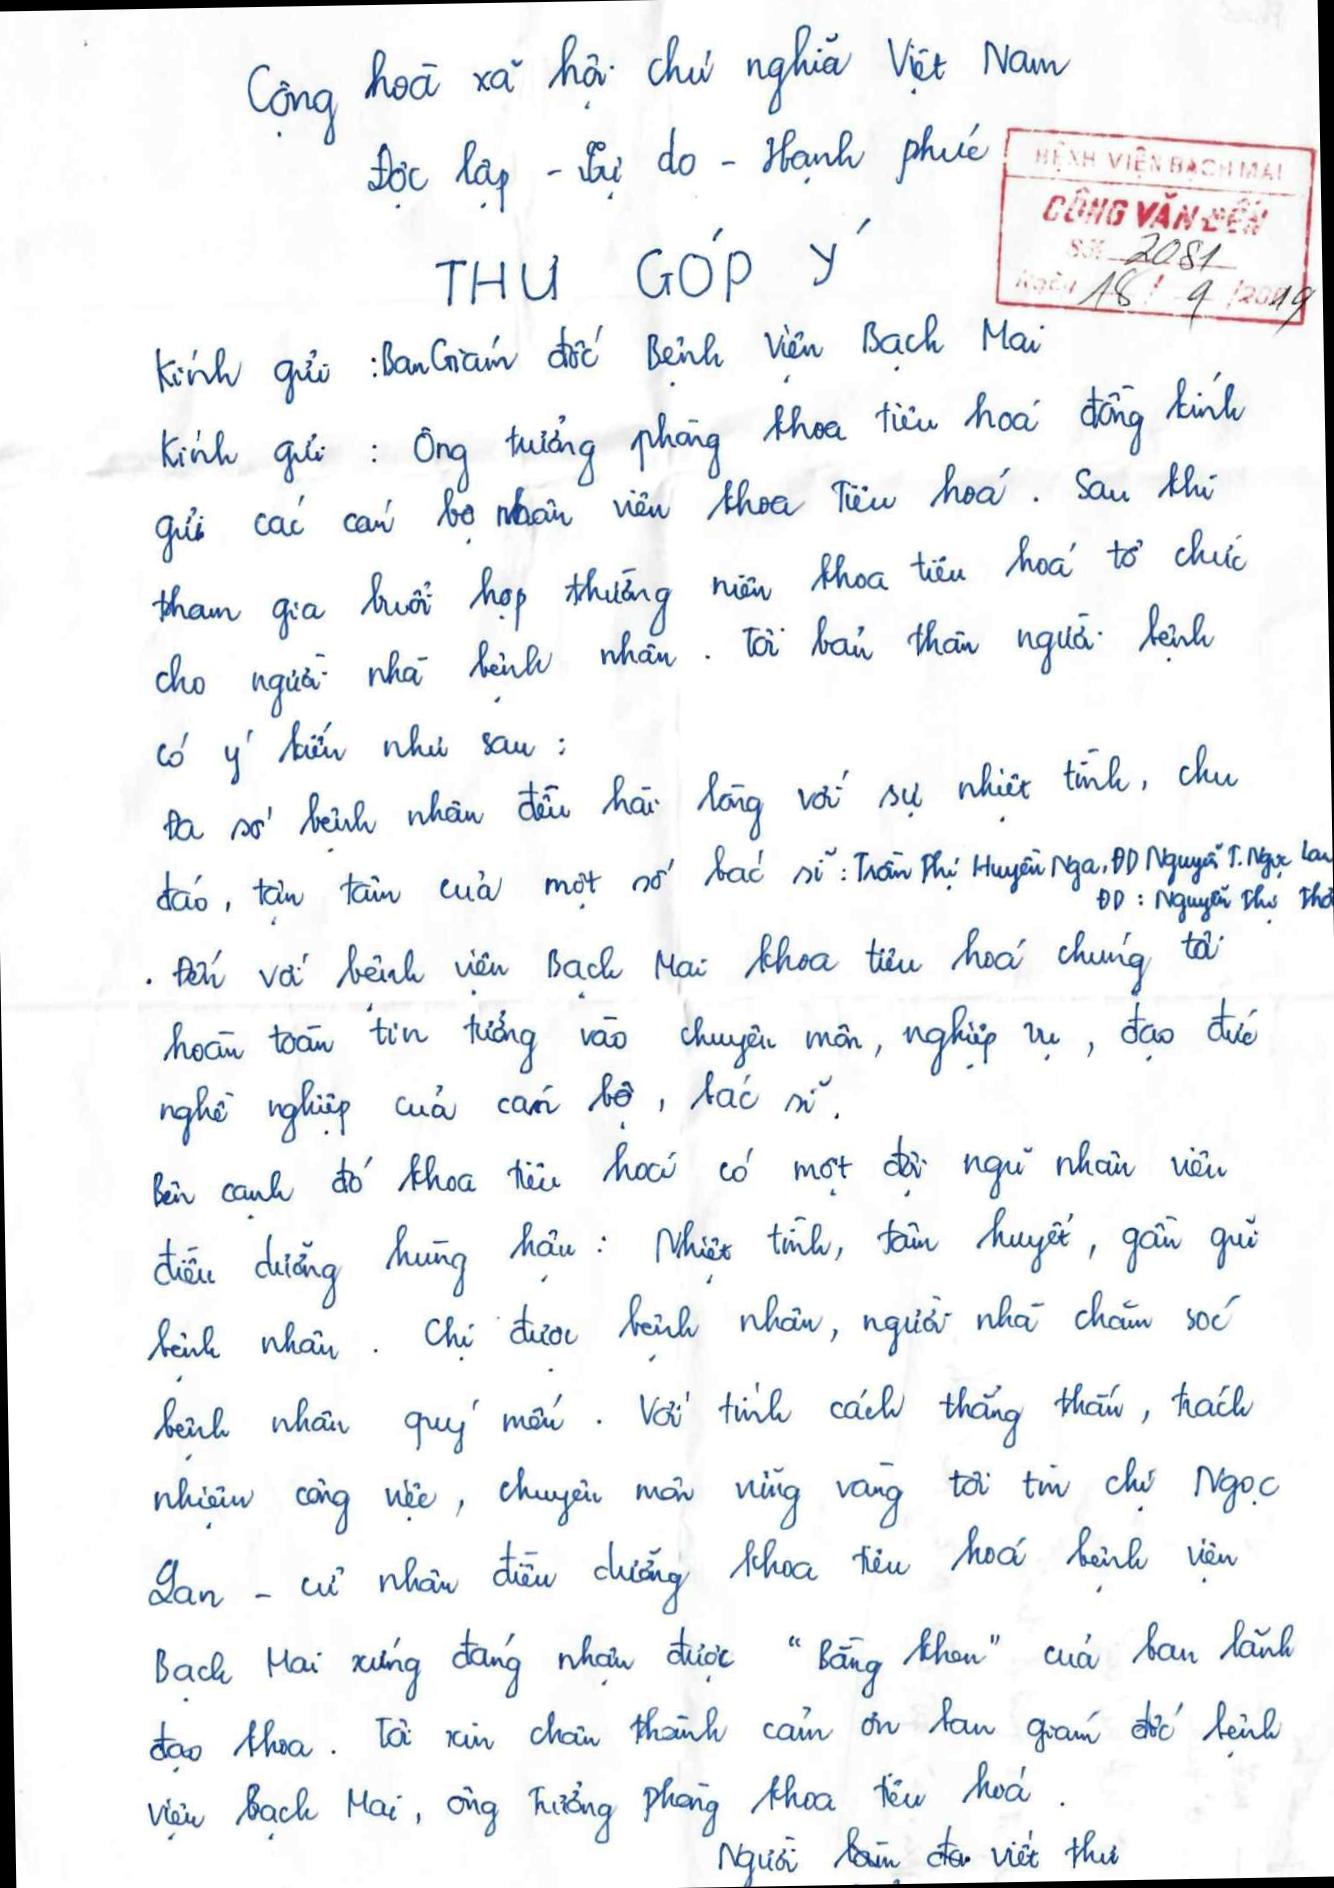 Cộng hoà xã hội chủ nghĩa Việt Nam
Độc lập - Tự do - Hạnh phúc
BỆNH VIỆN BẠCH MAI
CÔNG VĂN ĐẾN
Số: 2081
Ngày 18 / 9 /2019
THƯ GÓP Ý
Kính gửi : Ban Giám đốc Bệnh viện Bạch Mai
Kính gửi : Ông trưởng phòng khoa tiêu hoá đồng kính
gửi các cán bộ nhân viên khoa Tiêu hoá. Sau khi
tham gia buổi họp thường niên khoa tiêu hoá tổ chức
cho người nhà bệnh nhân. Tôi bản thân người bệnh
có ý kiến như sau :
Đa số bệnh nhân đều hài lòng với sự nhiệt tình, chu
đáo, tận tâm của một số bác sĩ : Trần Thị Huyền Nga, ĐD Nguyễn T. Ngọc Lan
ĐD : Nguyễn Thị
. Đến với bệnh viện Bạch Mai khoa tiêu hoá chúng tôi
hoàn toàn tin tưởng vào chuyên môn, nghiệp vụ, đạo đức
nghề nghiệp của cán bộ, bác sĩ.
Bên cạnh đó khoa tiêu hoá có một đội ngũ nhân viên
điều dưỡng hùng hậu : Nhiệt tình, tâm huyết, gần gũi
bệnh nhân. Chị được bệnh nhân, người nhà chăm sóc
bệnh nhân quý mến. Với tính cách thẳng thắn, trách
nhiệm công việc, chuyên môn vững vàng tôi tin chị Ngọc
Lan - cử nhân điều dưỡng khoa tiêu hoá bệnh viện
Bạch Mai xứng đáng nhận được "Bằng khen" của ban lãnh
đạo khoa. Tôi xin chân thành cảm ơn ban giám đốc bệnh
viện Bạch Mai, ông Trưởng phòng khoa tiêu hoá.
Người viết thư